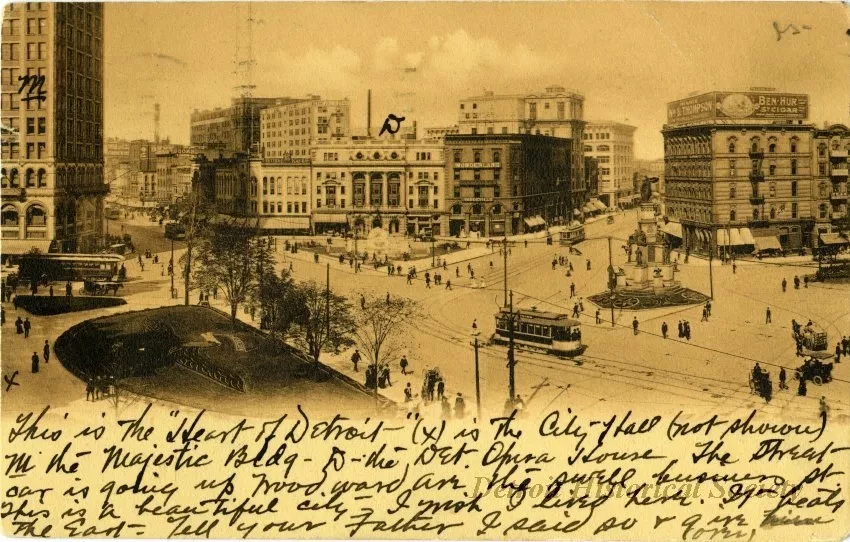 M
D
THOMPSON
BEN-HUR
5¢ CIGAR
X
This is the "Heart of Detroit-" (x) is the City Hall (not shown)
M the Majestic Bldg- D-the Det. Opera House. The Street
car is going up Woodward Ave the swell business st
This is a beautiful city- I wish I lived here. It beats
The East- Tell your Father I said so & give him
over,
Detroit Historical Society